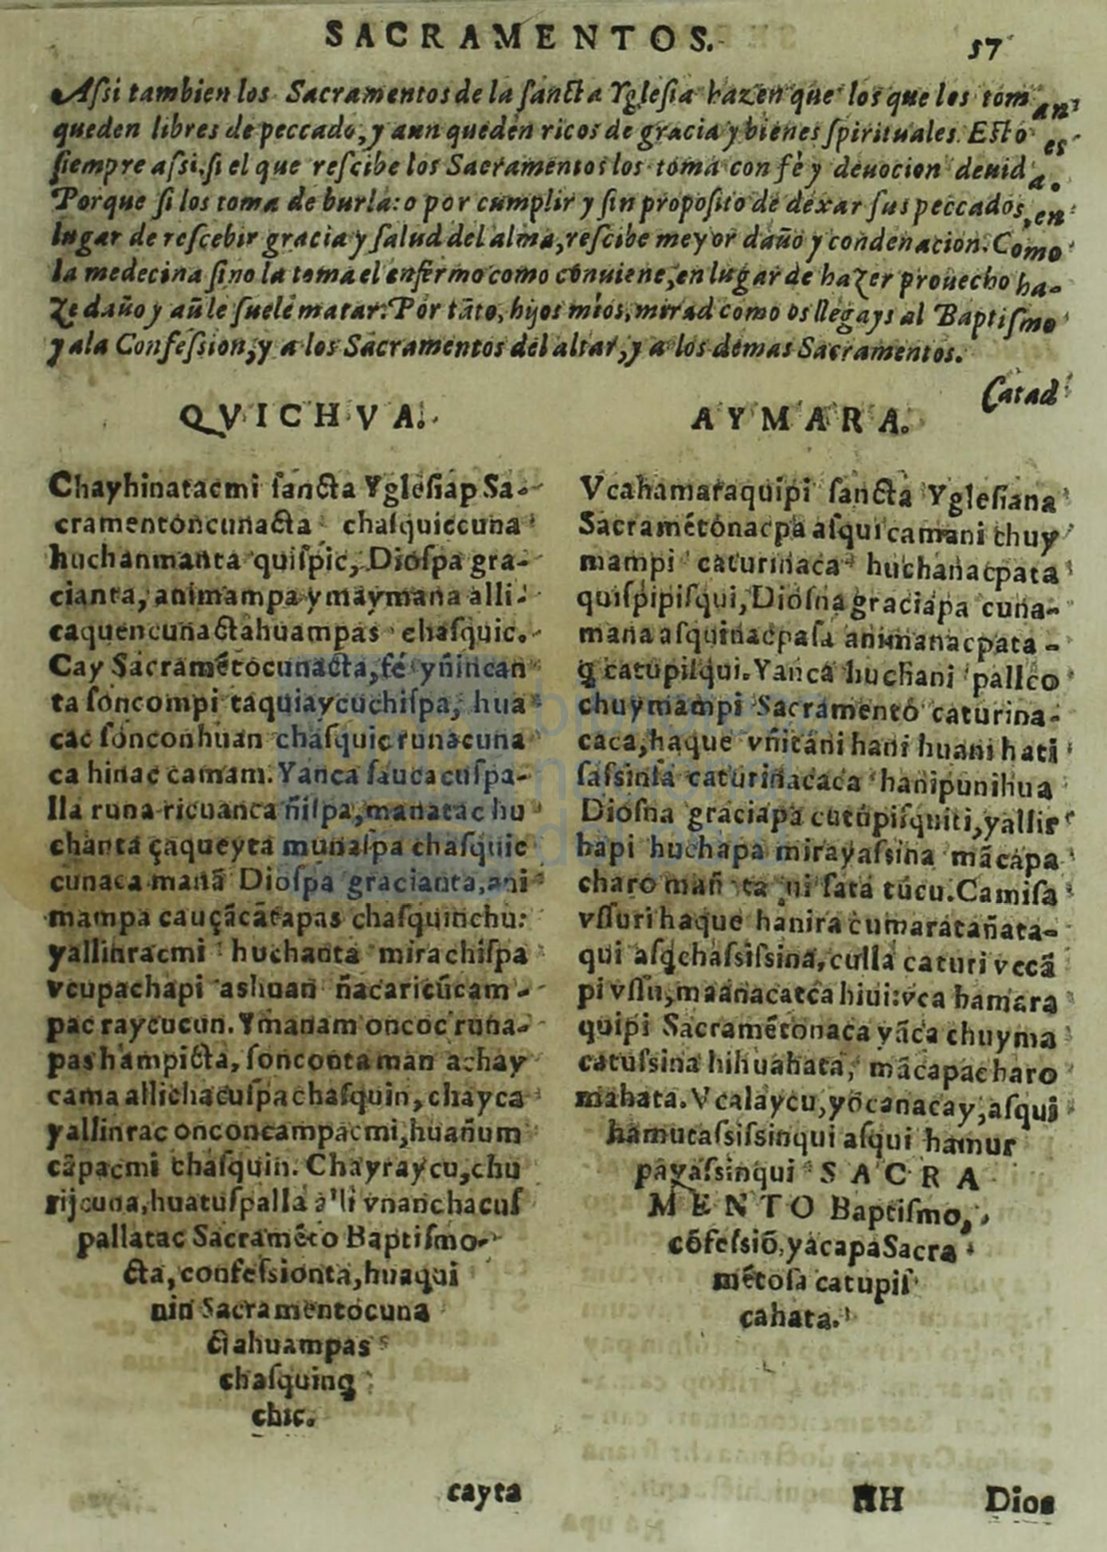 SACRAMENTOS.
57
Aſsi tambien los Sacramentos de la ſancta Ygleſia hazen que los que los toman,
queden libres de peccado, y aun queden ricos de gracia y bienes ſpirituales. Eſto es
ſiempre aſsi, ſi el que reſcibe los Sacramentos los toma con fè y deuocion deuida.
Porque ſi los toma de burla: o por cumplir y ſin propoſito de dexar ſus peccados, en
lugar de reſcebir gracia y ſalud del alma, reſcibe meyor daño y condenacion. Como
la medecina ſino la toma el enfermo como cõnuiene, en lugar de hazer prouecho ha-
ze daño y aũ le ſuelé matar: Por tãto, hijos mios, mirad como os llegays al Baptiſmo
y ala Confeſsion, y a los Sacramentos del altar, y a los demas Sacramentos.
Catad
QVICHVA.
Chayhinatacmi ſancta Ygleſiap Sa-
cramentoncunacta chaſquiccuna
huchanmanta quiſpic, Dioſpa gra-
cianta, animampa ymaymana alli-
caquencunactahuampas chaſquic.
Cay Sacramẽtocunacta, fé yñinĩcan
ta ſoncompi taquiaycuchiſpa, hua
cac ſonconhuan chaſquic runacuna
ca hinac camam. Yanca ſaucacuſpa-
lla runa ricuanca ñiſpa, manatac hu
chanta çaqueyta munaſpa chaſquic
cunaca manã Dioſpa gracianta, ani
mampa cauçãcãtapas chaſquinchu:
yallinracmi huchanta mirachiſpa
vcupachapi ashuan ñacaricũcam-
pac raycucun. Ymanam oncoc runa-
pas hampicta, ſoncontaman achay
cama allichacuſpa chaſquin, chayca
yallinrac onconcampacmi, huañum
cãpacmi chaſquin. Chayraycu, chu
rijcuna, huatuſpalla alli vnanchacuſ
pallatac Sacramẽto Baptiſmo-
cta, confeſsionta, huaqui
nin Sacramentocuna
ctahuampas
chaſquinq̃
chic.
cayta
AYMARA.
Vcahamaraquipi ſancta Ygleſiana
Sacramẽtonacpa aſqui camani chuy
mampi caturinaca huchanacpata
quiſpipiſqui, Dioſna graciapa cuna-
mana aſquinacpaſa animanacpata-
q̃ catupiſqui. Yanca huchani pallco
chuymampi Sacramento caturina-
caca, haque vñitani hani huani hati
ſaſsinſa caturinacaca hanipunihua
Dioſna graciapa catupiſquiti, yallir
hapi huchapa mirayaſsina mãcapa
charo mañ ta ni ſata tucu. Camiſa
vſſuri haque hanira cumaratañata-
qui aſq̃chaſsiſsina, culla caturi vccã
pi vſſu, maanacatca hiui: vca hamara
quipi Sacramẽtonaca yãca chuyma
catuſsina hihuahata, mãcapacharo
mahata. Vcalaycu, yocanacay, aſqui
hamutaſsiſsinqui aſqui hamur
payaſsinqui SACRA
MENTO Baptiſmo,
cõfeſsiõ, yacapa Sacra
mẽtoſa catupiſ
cahata.
HH
Dios